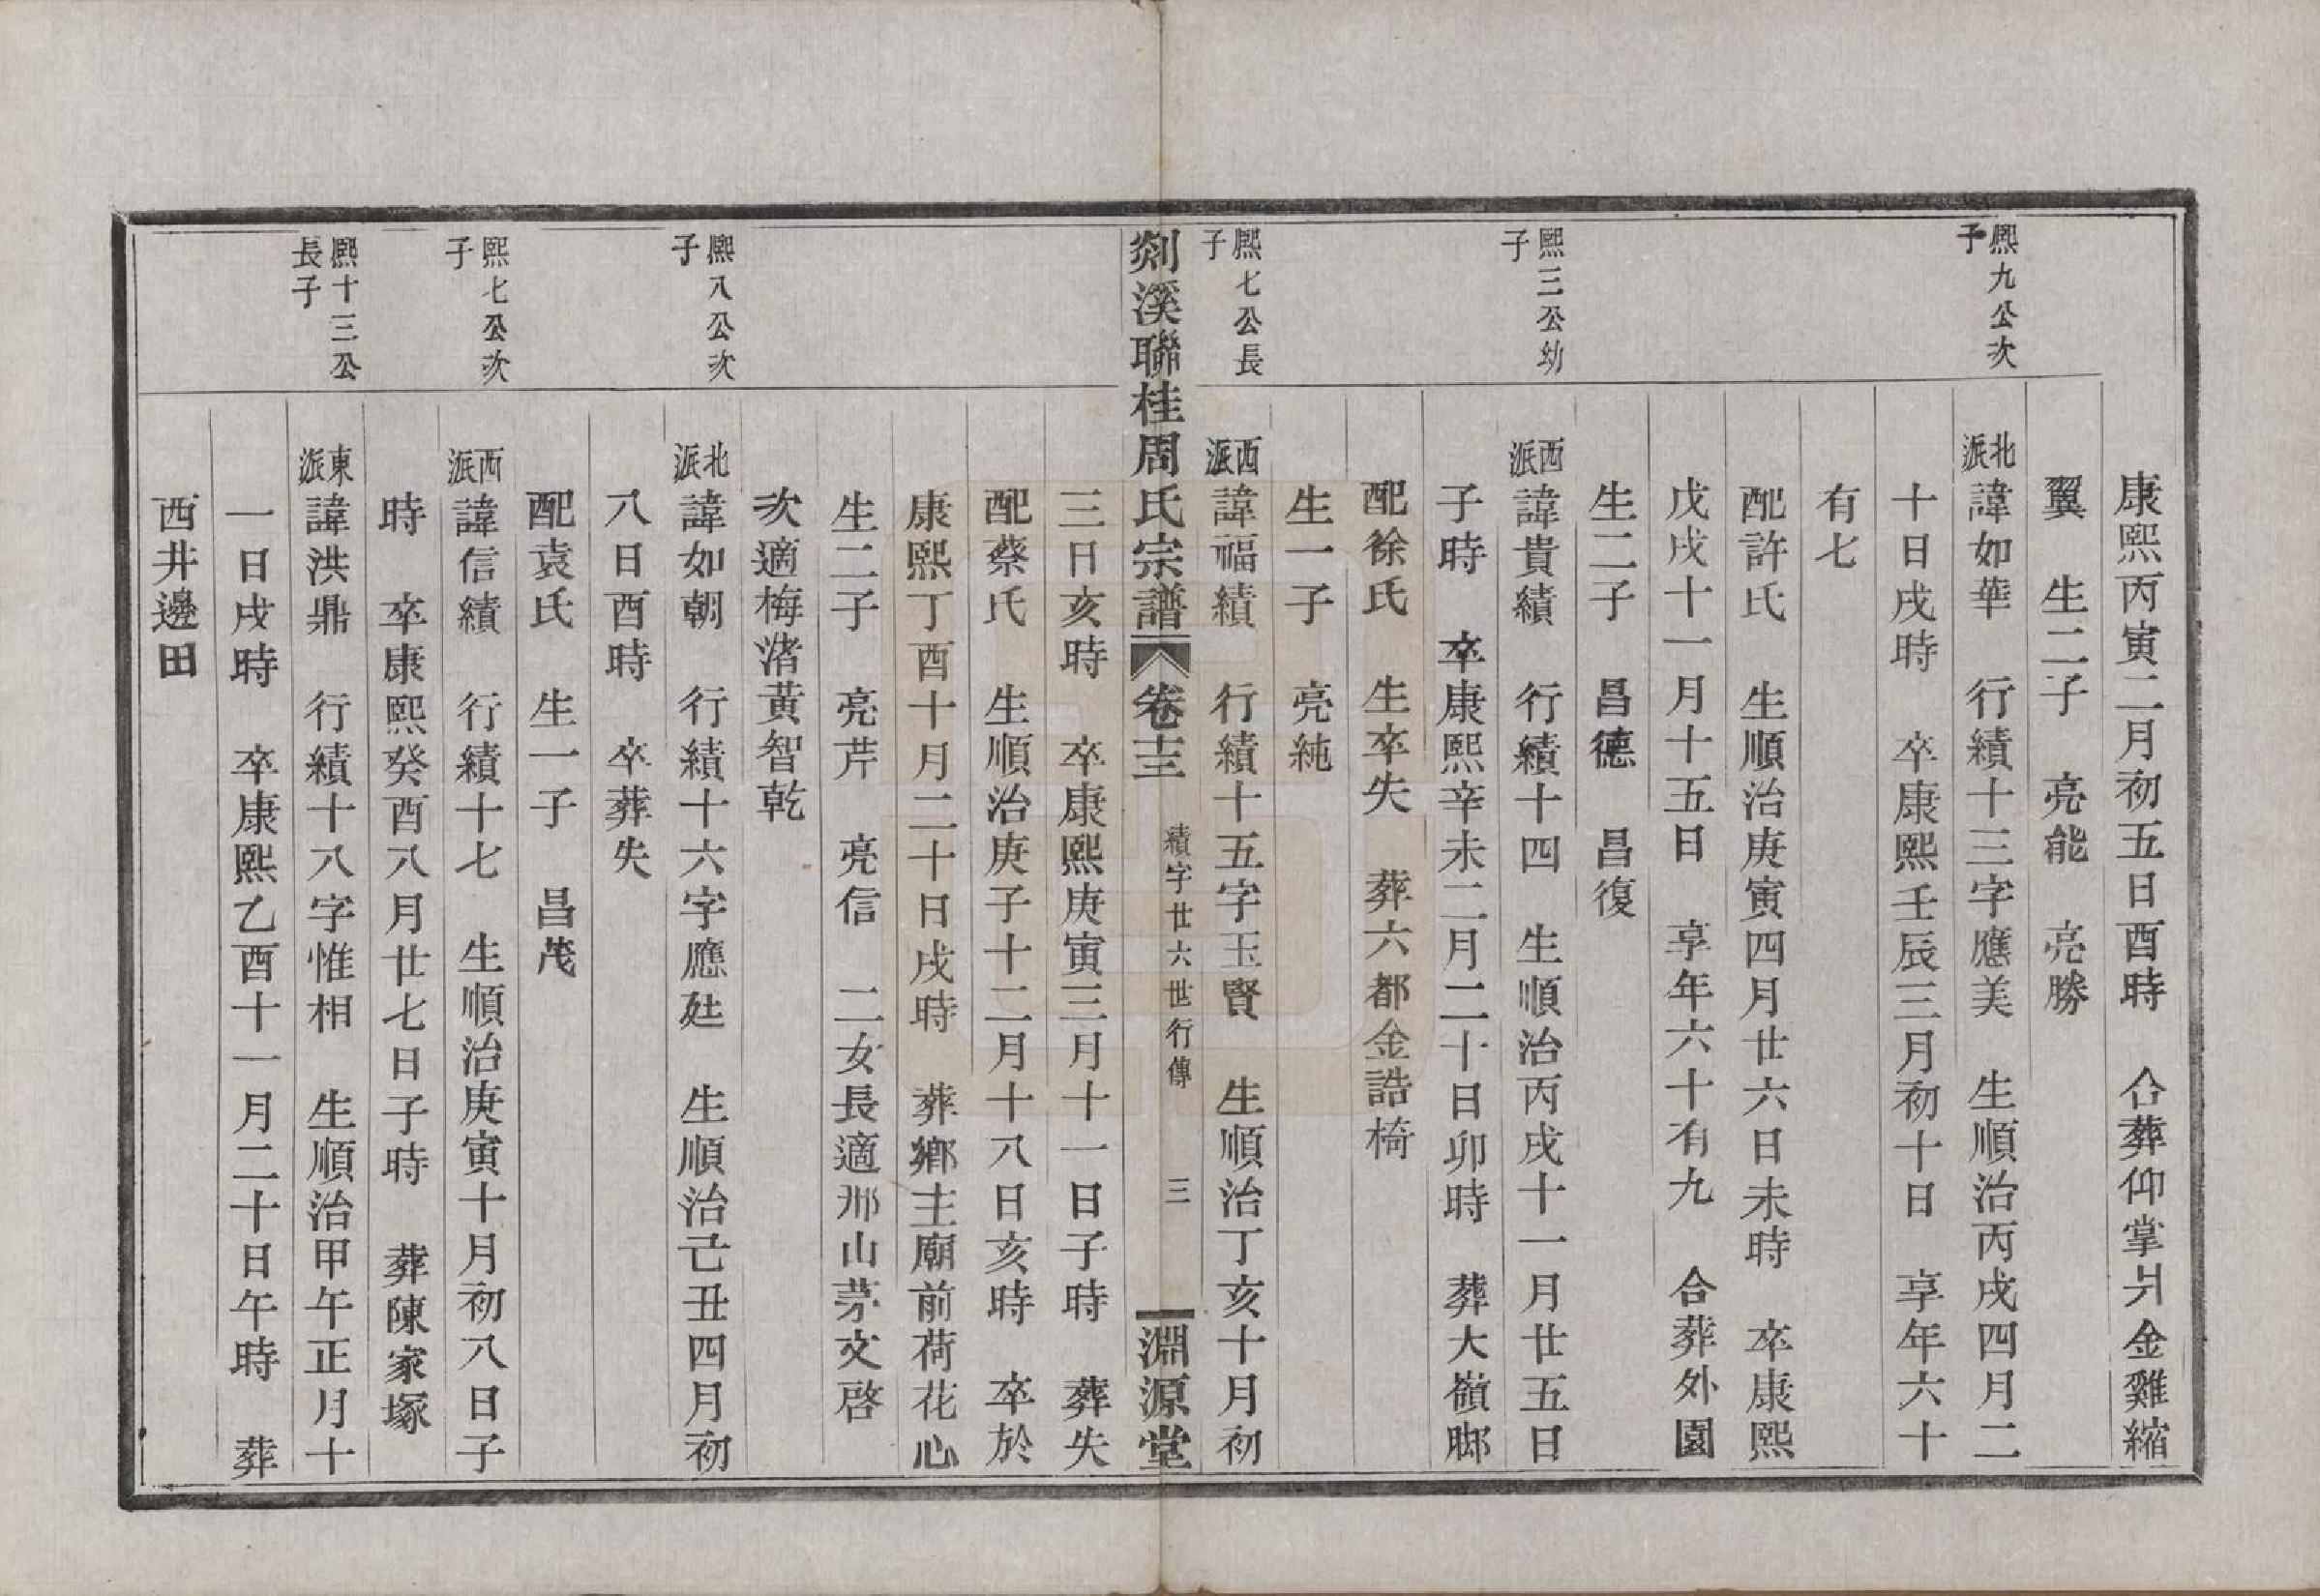 康熙丙寅二月初五日酉時　合葬仰掌爿金雞縮
翼　生二子　亮能　亮勝
熙九公次子
北派諱如華　行績十三字應美　生順治丙戌四月二
十日戌時　卒康熙壬辰三月初十日　享年六十
有七
配許氏　生順治庚寅四月廿六日未時　卒康熙
戊戌十一月十五日　享年六十有九　合葬外園
生二子　昌德　昌復
熙三公幼子
西派諱貴績　行績十四　生順治丙戌十一月廿五日
子時　卒康熙辛未二月二十日卯時　葬大嶺郞
配徐氏　生卒失　葬六都金誥椅
生一子　亮純
熙七公長子
西派諱福績　行績十五字玉賢　生順治丁亥十月初
剡溪聯桂周氏宗譜　卷十三　績字廿六世行傳　三　淵源堂
三日亥時　卒康熙庚寅三月十一日子時　葬失
配蔡氏　生順治庚子十二月十八日亥時　卒於
康熙丁酉十月二十日戌時　葬鄉主廟前荷花心
生二子　亮芹　亮信　二女長適邢山茅文啓
次適梅渚黃智乾
熙八公次子
北派諱如朝　行績十六字應廷　生順治己丑四月初
八日酉時　卒葬失
配袁氏　生一子　昌茂
熙七公次子
西派諱信績　行績十七　生順治庚寅十月初八日子
時　卒康熙癸酉八月廿七日子時　葬陳家塚
熙十三公長子
東派諱洪鼎　行績十八字惟相　生順治甲午正月十
一日戌時　卒康熙乙酉十一月二十日午時　葬
西井邊田